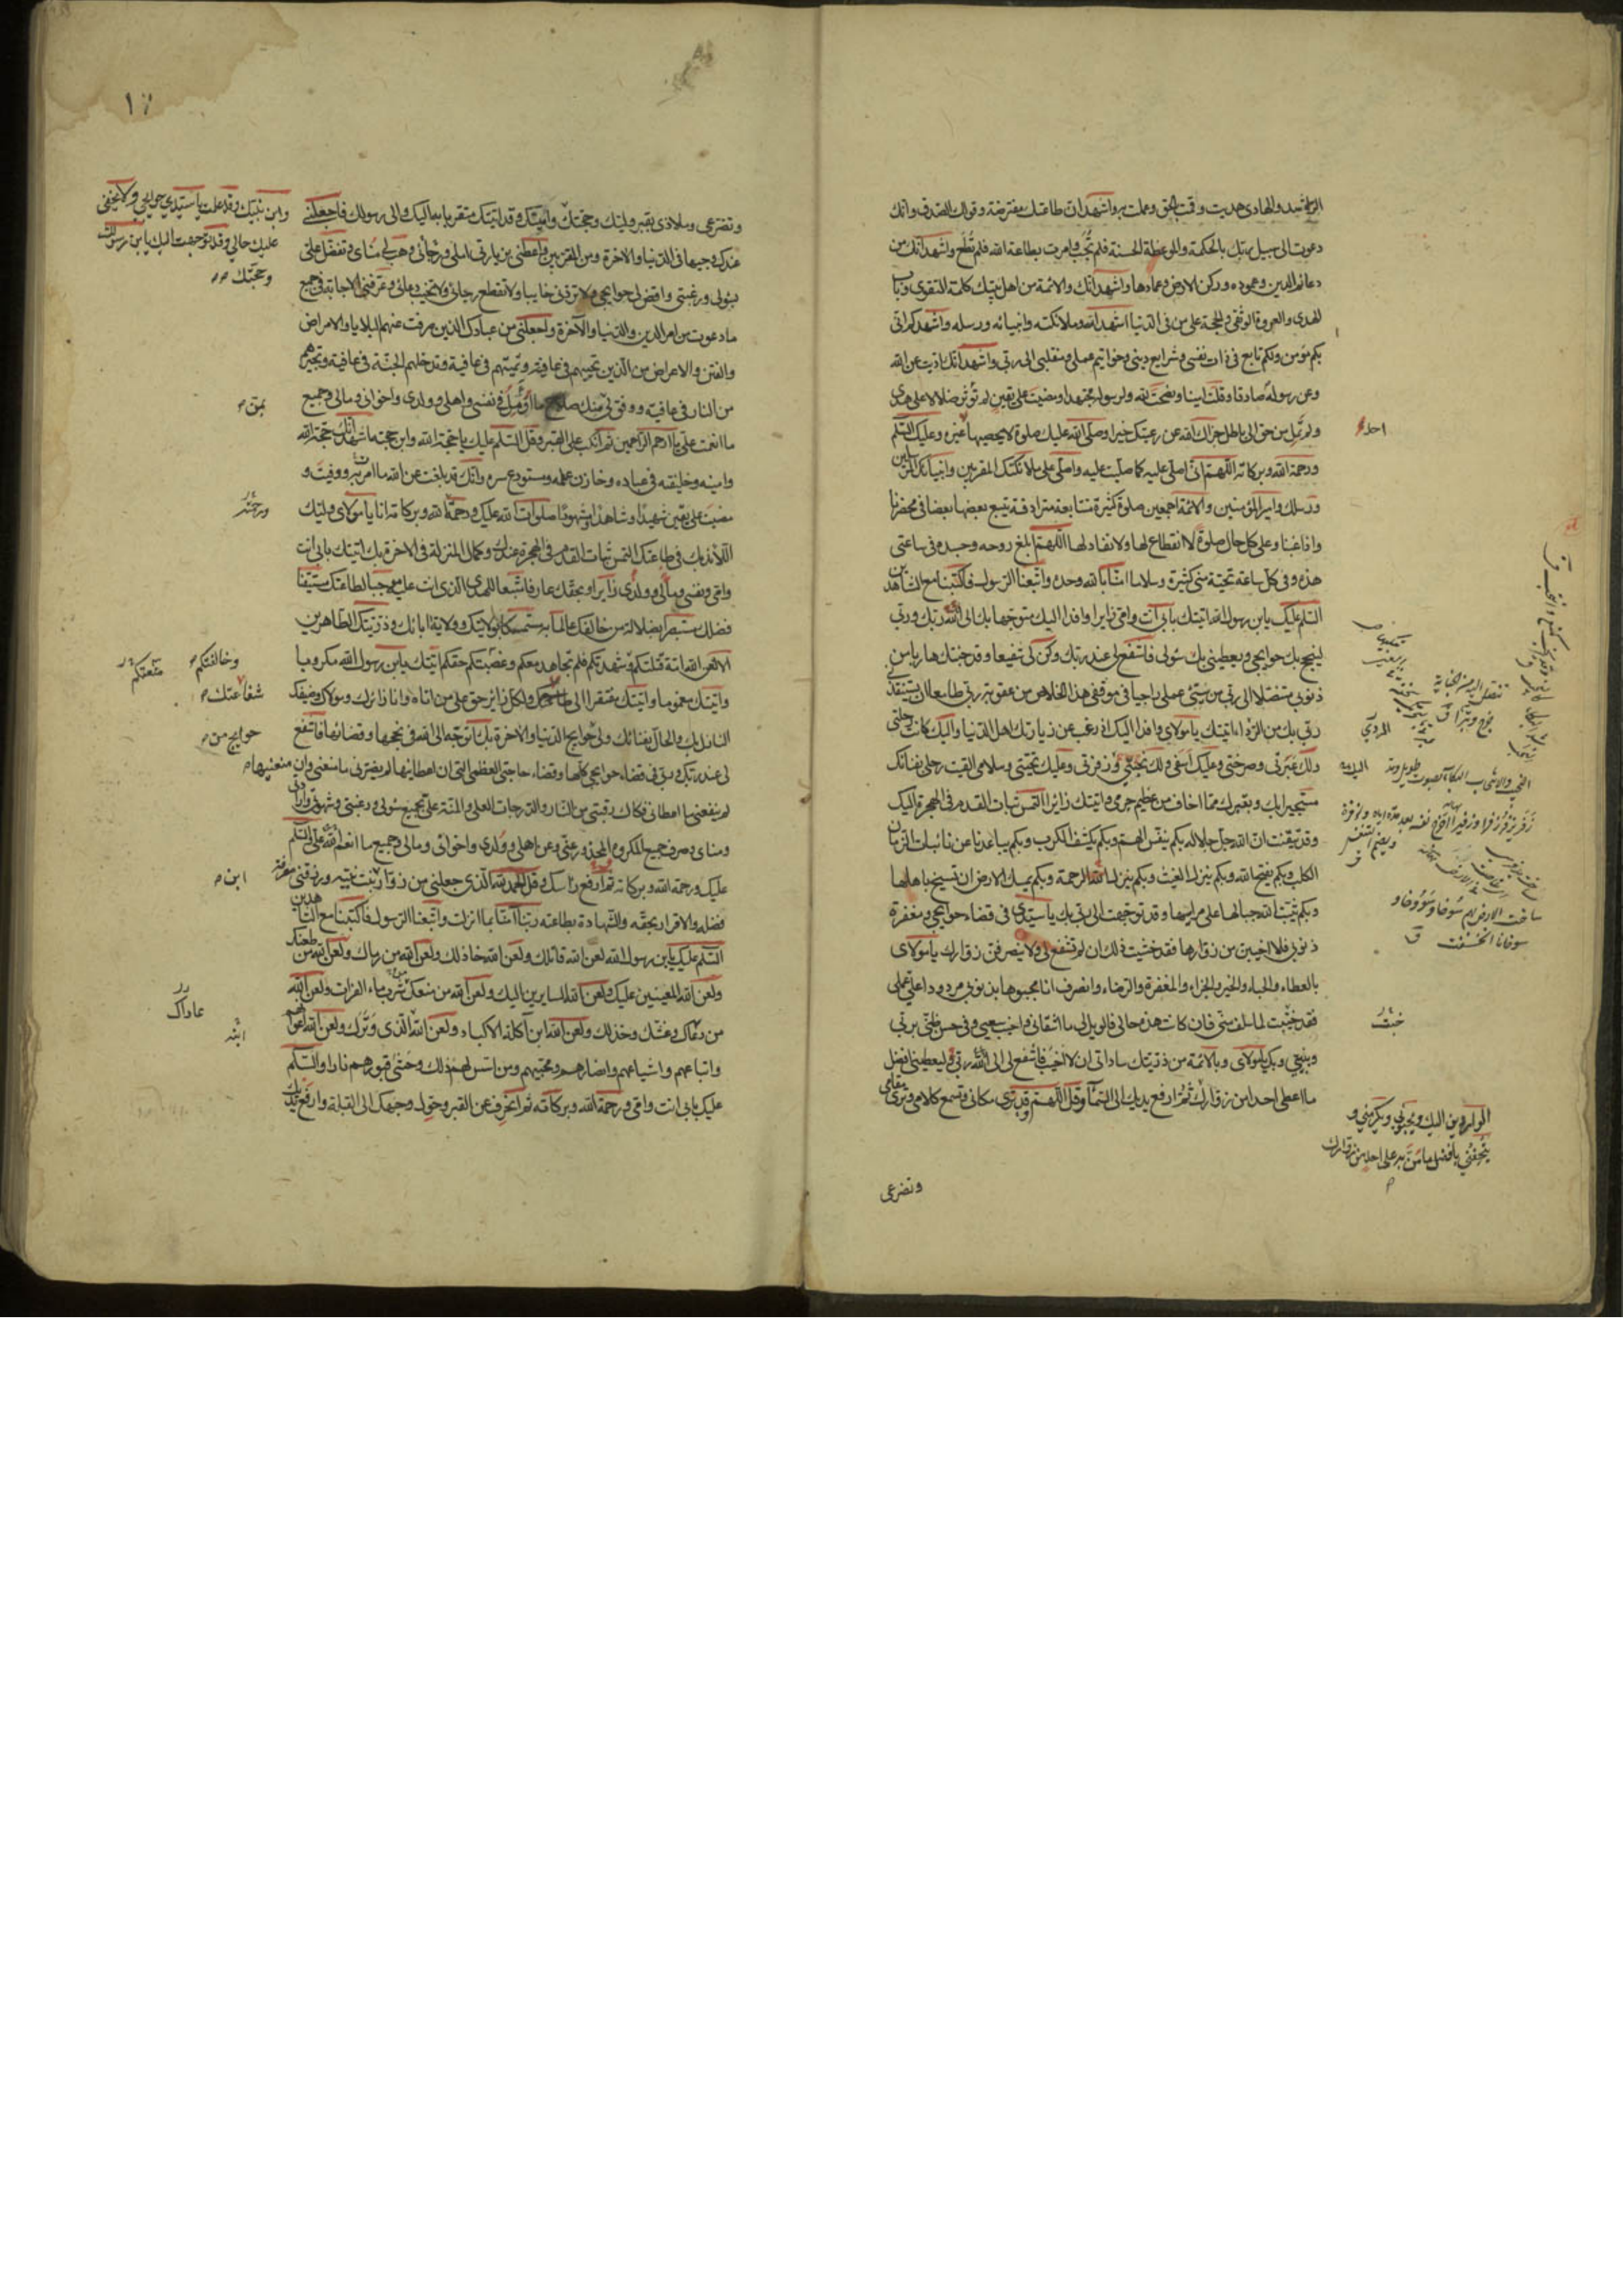 الراشد والهادى هديت وقمت بالحق وعملت به واشهد ان طاعتك مفترضة وقولك الصدق وانك
دعوت الى سبيل ربك بالحكمة والموعظة الحسنة فلم تُجَب وامرت بطاعة الله فلم تُطَع واشهد انك من
دعائم الدين وعموده وركن الارض وعمادها واشهد انك والائمة من اهل بيتك كلمة التقوى وباب
الهدى والعروة الوثقى والحجة على من فى الدنيا اشهد الله وملائكته وانبيائه ورسله واشهدكم انى
بكم مؤمن ولكم تابع فى ذات نفسى وشرايع دينى وخواتيم عملى ومنقلبى الى ربى واشهد انك اديت عن الله
وعن رسوله صادقا وقلت امينا ونصحت لله ولرسوله مجتهدا ومضيت على يقين لم تؤثر ضلالا على هدى
ولم تمل من حق الى باطل جزاك الله عن رعيتك خيرا وصلى الله عليك صلوة لا يحصيها غيره وعليك السلم
ورحمة الله وبركاته اللهم انى اصلى عليه كما صليت عليه واصلى على ملائكتك المقربين وانبيائك المرسلين
ورسلك وامير المؤمنين والائمة اجمعين صلوة كثيرة متتابعة مترادفة يتبع بعضها بعضا فى محضرنا
واذا غبنا وعلى كل حال صلوة لا انقطاع لها ولا نفاد لها اللهم ابلغ روحه وجسده فى ساعتى
هذه وفى كل ساعة تحية منى كثيرة وسلاما امنا بالله وحده واتبعنا الرسول فاكتبنا مع الشاهدين
السلم عليك يابن رسول الله اتيتك بابى انت وامى زايرا وافدا اليك متوجها بك الى الله ربك وربى
لينجح بك حوايجى ويعطينى بك سؤلى فاشفع لى عند ربك وكن لى شفيعا وقد جئتك هاربا من
ذنوبى متنصلا الى ربى من سيئ عملى راجيا فى موقفى هذا الخلاص من عقوبة ربى طامعا ان يستنقذنى
ربى بك من الردا اتيتك يا مولاى وافدا اليك اذ رغب عن زيارتك اهل الدنيا واليك كانت رحلتى
ولك عبرتى وصرختى وعليك اسفى ولك نحيبى وزفرتى وعليك تحيتى وسلامى القيت رحلى بفنائك
مستجيرا بك وبقبرك مما اخاف من عظيم جرمى واتيتك زائرا التمس ثبات القدم فى الهجرة اليك
وقد تيقنت ان الله جل جلاله بكم ينفس الهم وبكم يكشف الكرب وبكم يباعدنا عن نائبات الزمان
الكلب وبكم يفتح الله وبكم ينزل الغيث وبكم ينزل الله الرحمة وبكم يمسك الارض ان تسيخ باهلها
وبكم يثبت الله جبالها على مراسيها وقد توجهت الى ربى بك يا سيدى فى قضاء حوايجى ومغفرة
ذنوبى فلا اخيبن من زوارها فقد خشيت ذلك ان لم تشفع لى ولا ينصرفن زوارك يا مولاى
بالعطاء والحباء والخير والجزاء والمغفرة والرضاء وانصرف انا مجبوها بذنوبى مردودا على عملى
فقد خيبت لما سلف منى فان كانت هذه حالى فالويل لى ما اشقانى واخيب سعيى وفى حسن ظنى بربى
وبنبيى وبك يا مولاى وبالائمة من ذريتك ساداتى ان لا اخيب فاشفع لى الى الله ربى ليعطينى افضل
ما اعطى احدا من زوارك ثم ارفع يديك الى السماء وقل اللهم قد ترى مكانى وتسمع كلامى وترى مقامى
وتضرعى
احد
خيبت
الواردين اليك ويحبونى ويكرمنى و
يتحفنى بافضل ما من به على احد من زوارك
ساخت الارض بهم سُوخا وسؤوخا و
سوخانا انخسفت ق
وتضرعى وملاذى بقبر وليك وحجتك وامينك وقد اتيتك متقربا به اليك والى رسولك فاجعلنى
عندك وجيها فى الدنيا والاخرة ومن المقربين واعطنى بزيارتى املى ورجائى وهب لى مناى وتفضل على
بسؤلى ورغبتى واقض لى حوايجى ولا تردنى خايبا ولا تقطع رجائى ولا تخيب دعائى وعرفنى الاجابة فى جميع
ما دعوت من امر الدين والدنيا والآخرة واجعلنى من عبادك الذين صرفت عنهم البلايا والامراض
والفتن والاعراض من الذين تحييهم فى عافية وتميتهم فى عافية وتدخلهم الجنة فى عافية وتجيرهم
من النار فى عافية ووفق لى بمنك صلاح ما اؤمل فى نفسى واهلى وولدى واخوانى ومالى وجميع
ما انعمت على يا ارحم الراحمين ثم انكب على القبر وقل السلم عليك يا حجة الله وابن حجته اشهد انك حجة الله
وامينه وخليفته فى عباده وخازن علمه ومستودع سره وانك قد بلغت عن الله ما امرت به ووفيت و
مضيت على يقين شهيدا وشاهدا ومشهودا صلوات الله عليك ورحمة الله وبركاته انا يا مولاى وليك
اللائذ بك فى طاعتك التمس ثبات القدم فى الهجرة عندك وكمال المنزلة فى الاخرة بك اتيتك بابى انت
وامى ونفسى ومالى وولدى زايرا وبحقك عارفا متبعا للهدى الذى انت عليه موجبا لطاعتك مستيقنا
فضلك مستبصرا بضلالة من خالفك عالما به مستمسكا بولايتك وولاية ابائك وذريتك الطاهرين
الا لعن الله امة قتلتكم وشهدتكم فلم تجاهد معكم وغصبتكم حقكم اتيتك يابن رسول الله مكروبا
واتيتك مغموما واتيتك مفتقرا الى ولكل زائر حق على من اتاه وانا زائرك ومولاك وضيفك
النازل بك والحال بفنائك ولى حوايج من حوايج الدنيا والاخرة بك اتوجه الى الله فى نجحها وقضائها فاشفع
لى عند ربك وربى فى قضاء حوايجى كلها وقضاء حاجتى العظمى التى ان اعطانيها لم يضرنى ما منعنى وان منعنيها
لم ينفعنى ما اعطانى فكاك رقبتى من النار والدرجات العلى والمنة على بجميع سؤلى ورغبتى وشهوتى وارادتى
ومناى وصرف جميع المكروه والمحذور عنى وعن اهلى وولدى واخوانى ومالى وجميع ما انعم الله على والسلم
عليك ورحمة الله وبركاته ثم ارفع رأسك وقل الحمد لله الذى جعلنى من زوار ابن بنت نبيه ورزقنى معرفة
فضله والاقرار بحقه والشهادة بطاعته ربنا آمنا بما انزلت واتبعنا الرسول فاكتبنا مع الشاهدين
السلم عليك يابن رسول الله لعن الله قاتلك ولعن الله خاذلك ولعن الله من رماك ولعن الله من طعنك
ولعن الله المعينين عليك ولعن الله السايرين اليك ولعن الله من منعك شرب ماء الفرات ولعن الله
من دعاك وغشك وخذلك ولعن الله ابن آكلة الاكباد ولعن الله الذى وترك ولعن الله اعوانهم
واتباعهم واشياعهم وانصارهم ومحبيهم ومن اسس لهم ذلك وحشى قبورهم نارا والسلم
عليك بابى انت وامى ورحمة الله وبركاته ثم انحرف عن القبر وحول وجهك الى القبلة وارفع يديك
وابن نبيك وقد علمت يا سيدى حوايجى ولا يخفى
عليك حالى وقد توجهت اليك يابن رسولك
وحجتك
بمن
ورحمته
وخالفتكم
شفاعتك
حوايج من
ابن
عاداك
ابنه